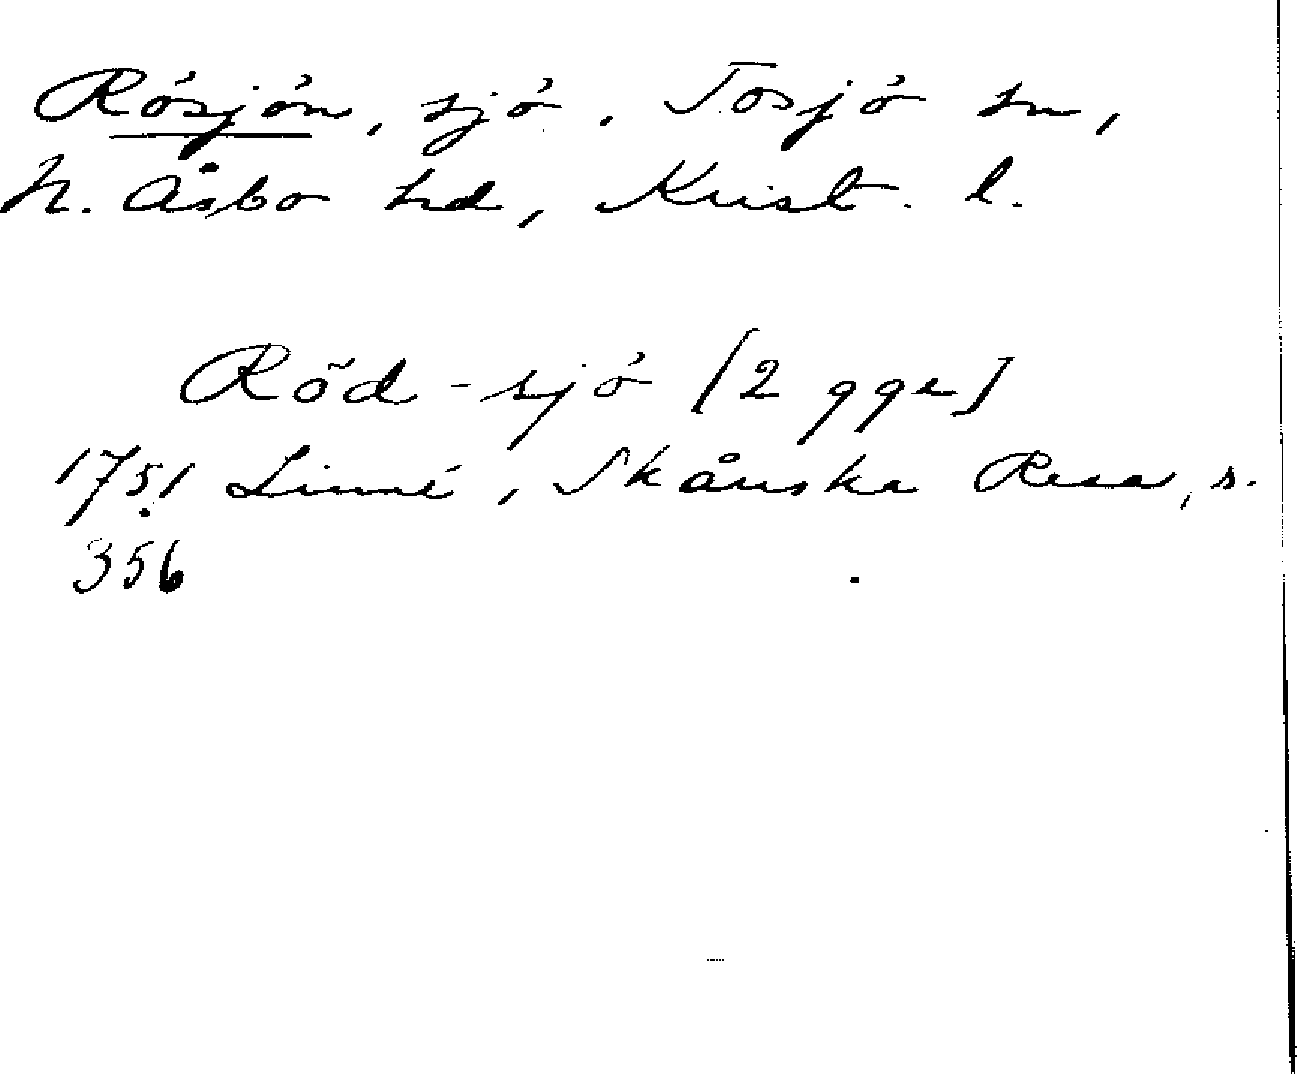 Rösjön, sjö, Tosjö sn,
N. Åsbo hd, Krist. l.
Röd-sjö [2 ggr]
1751 Linné, Skånska Resa, s.
356